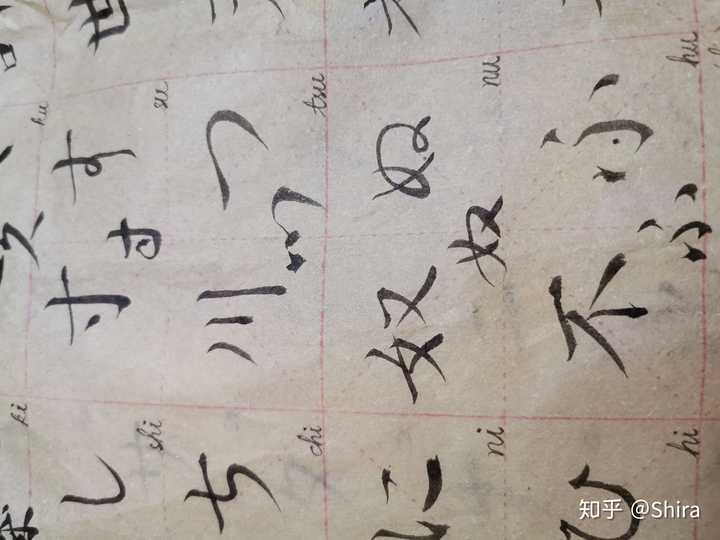 ki
ku
し
寸 す す
世
shi
su
ち
川 つ つ
chi
tsu
に
奴 ぬ ぬ
ni
nu
ひ
不 ふ ふ
hi
hu
知乎 @Shira